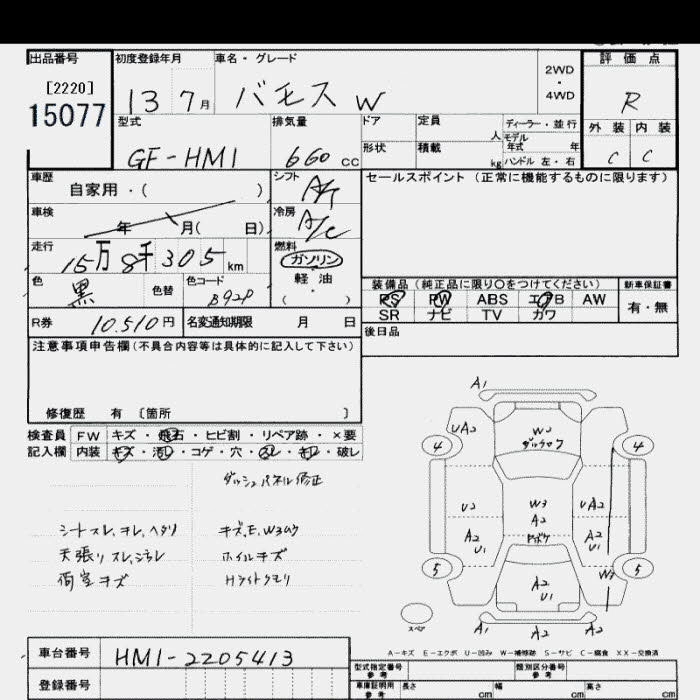 出品番号
[2220]
15077
初度登録年月
13 7月
車名・グレード
バモス W
2WD
・
4WD
評価点
R
外装 内装
C C
型式
GF-HM1
排気量
660 cc
ドア
定員
人
ディーラー・並行
モデル
年式 年
形状
積載
kg
ハンドル 左・右
車歴
自家用・( )
シフト
A/T
セールスポイント (正常に機能するものに限ります)
車検
年 月( 日)
冷房
A/C
走行
15万8千305km
燃料
ガソリン
軽油
( )
色
黒
色替
色コード
B92P
装備品 (純正品に限り○をつけてください)
新車保証書
PS PW ABS エアB AW
有・無
SR ナビ TV カワ
R券
10,510円
名変通知期限 月 日
後日品
注意事項申告欄 (不具合内容等は具体的に記入して下さい)
修復歴 有 〔箇所 〕
検査員
記入欄
FW キズ・飛石・ヒビ割・リペア跡・×要
内装 キズ・汚レ・コゲ・穴・スレ・キレ・破レ
ダッシュパネル修正
シートスレ、キレ、ヘタリ
天張りスレ、シミレ
荷室キズ
キズ、E、W3ムラ
ホイルキズ
Hライトクモリ
A1
UA2
W2
4
4
U2
W3
A2
UA2
A2
U1
A2
U1
5
5
A2
U1
W3
スペア
A1 A2 A2
A-キズ E-エクボ U-凹み W-補修跡 S-サビ C-腐食 XX-交換済
車台番号
HM1-2205413
登録番号
型式指定番号
参考
類別区分番号
参考
車庫証明用
参考
長さ cm
幅 cm
高さ cm